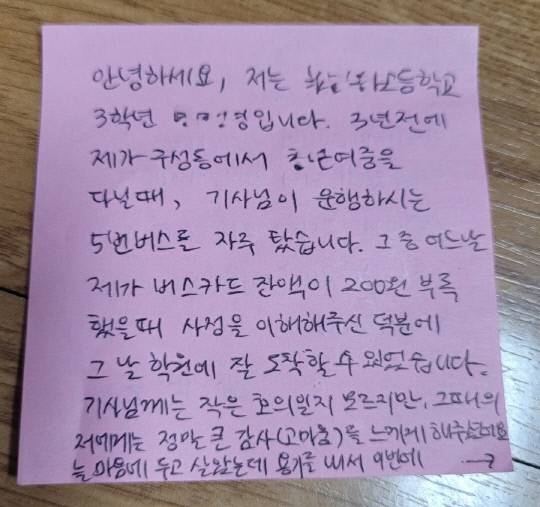 안녕하세요, 저는 고등학교
3학년 입니다. 3년전에
제가 구성동에서 청년여중을
다닐때, 기사님이 운행하시는
5번버스를 자주 탔습니다. 그 중 어느날
제가 버스카드 잔액이 200원 부족
했을때 사정을 이해해주신 덕분에
그 날 학원에 잘 도착할 수 있었습니다.
기사님께는 작은 호의일지 모르지만, 그때의
저에게는 정말 큰 감사(고마움)를 느끼게 해주셨어요
늘 마음에 두고 살았는데 용기를 내서 이번에 →